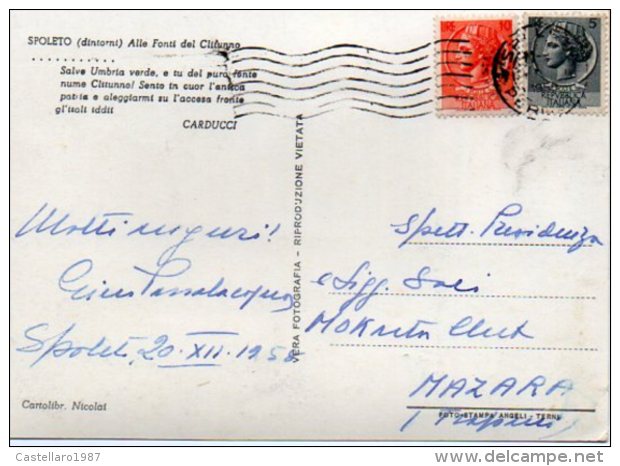 SPOLETO (dintorni) Alle Fonti del Clitunno
. . . . . . . . . . .
Salve Umbria verde, e tu del puro fonte
nume Clitunno! Sento in cuor l'antica
patria e aleggiarmi su l'accesa fronte
gl'itali iddii
CARDUCCI
5
REPUBBLICA
ITALIANA
ITALIANA
VERA FOTOGRAFIA - RIPRODUZIONE VIETATA
Molti auguri!
Spoleto, 20. XII. 195
Cartolibr. Nicolai
Spett. Presidenza
e Sigg. Soci
Mokarta Club
MAZARA
(Trapani)
FOTO-STAMPA ANGELI - TERNI
Castellaro1987
www.delcampe.net